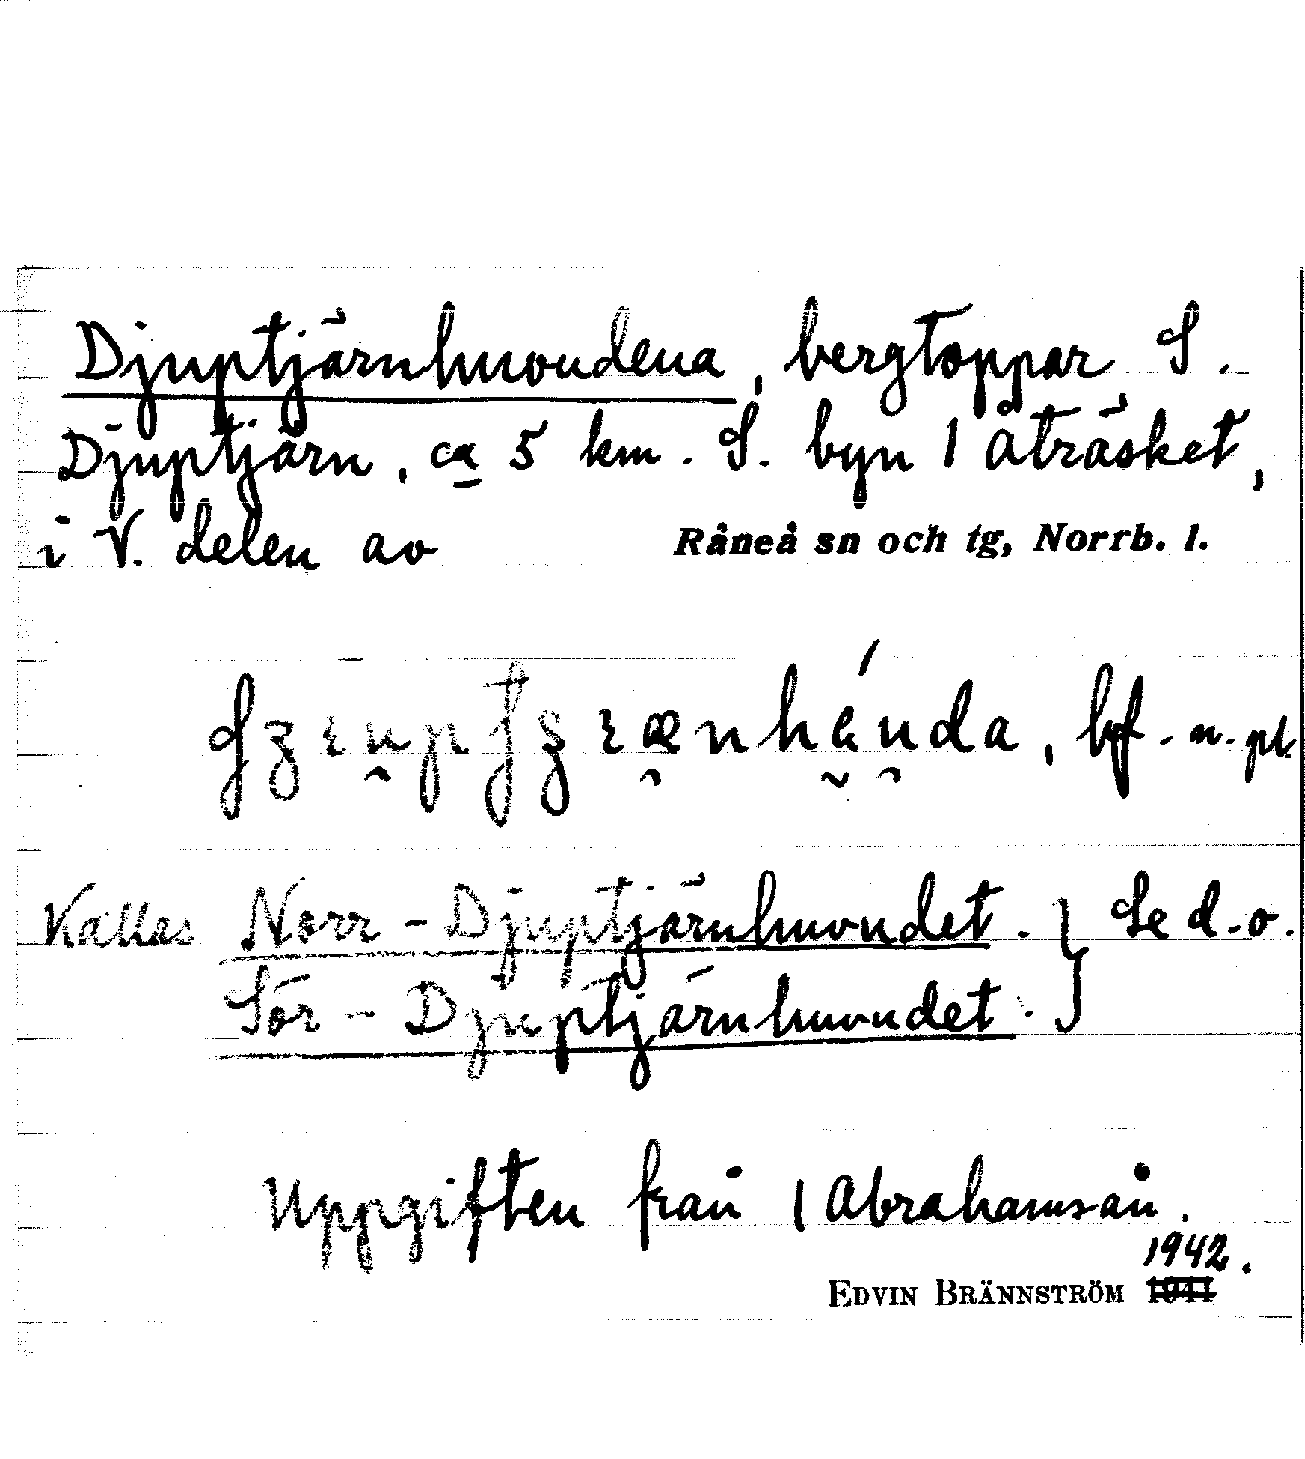 Djuptjärnhuvudena, bergtoppar S.
Djuptjärn, ca 5 km. S. byn | Åträsket,
i V. delen av Råneå sn och tg, Norrb. l.
bf. n. pl.
Kallas Norr-Djuptjärnhuvudet. } Se d.o.
Sör-Djuptjärnhuvudet. }
Uppgiften från | Abrahamsån.
1942.
EDVIN BRÄNNSTRÖM 1941